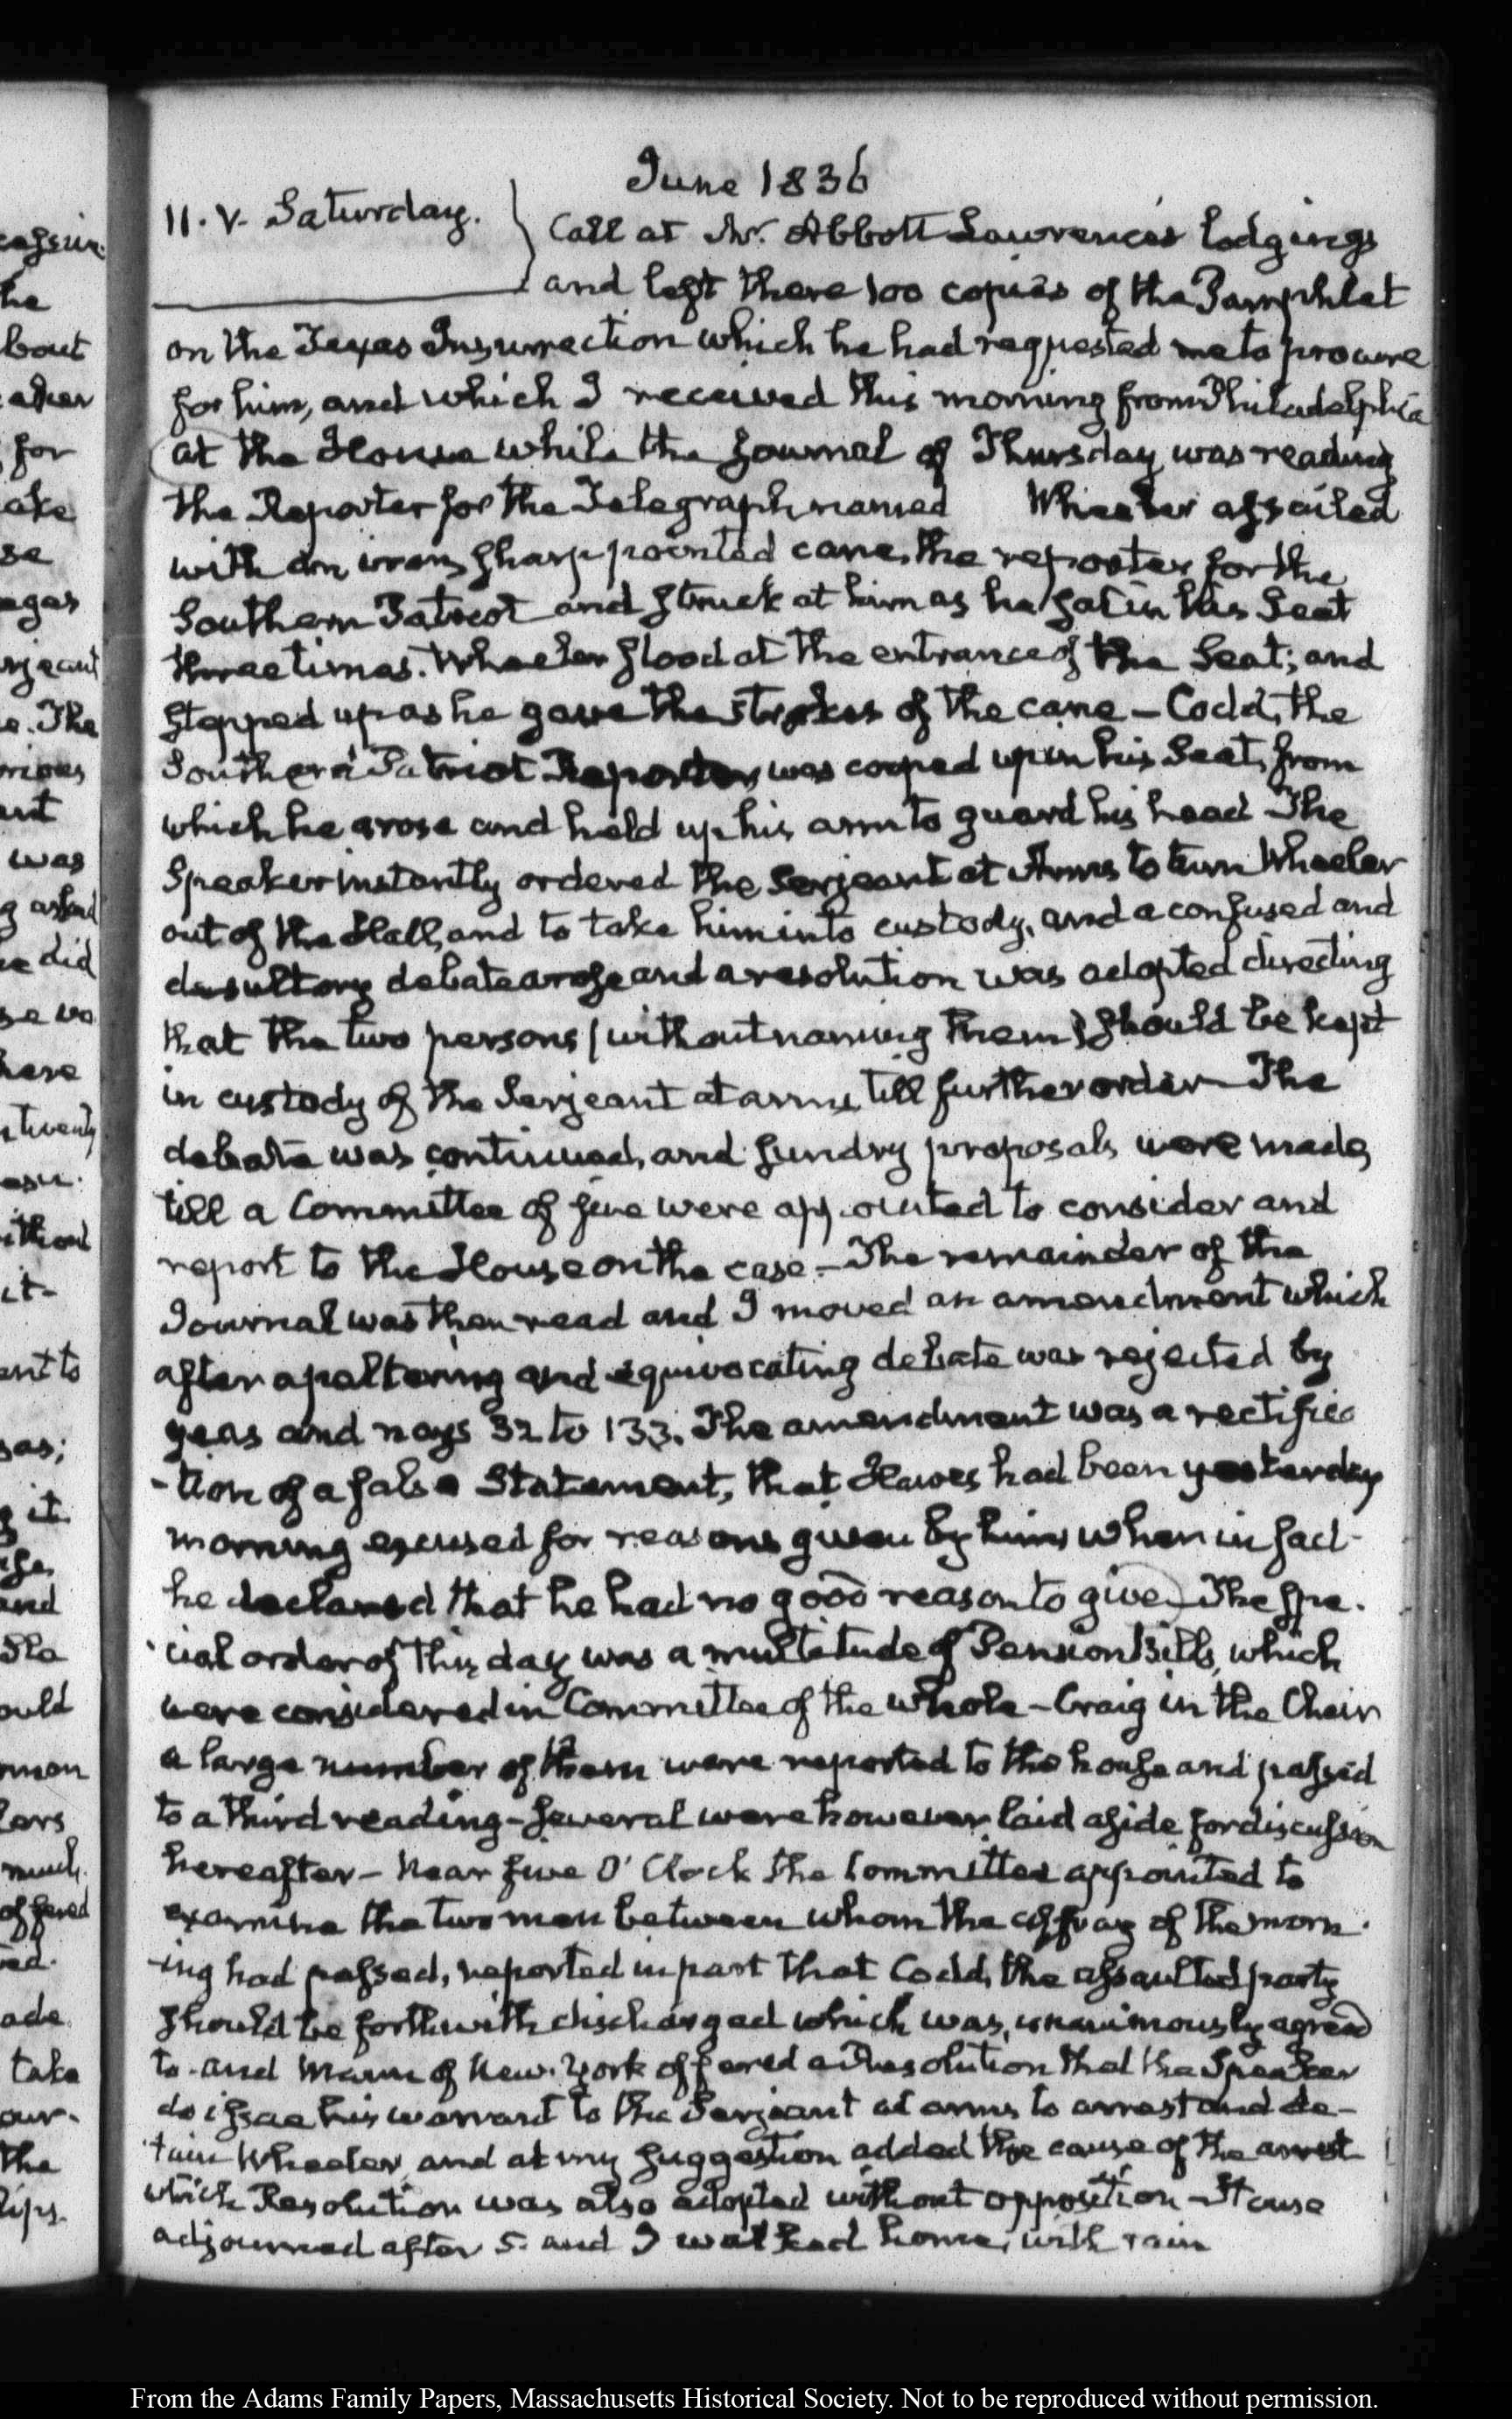 June 1836
11. V. Saturday.
Call at Mr. Abbott Lawrence's lodgings
and left there 100 copies of the Pamphlet
on the Texas Insurrection which he had requested me to procure
for him, and which I received this morning from Philadelphia
at the House while the Journal of Thursday was reading
the Reporter for the Telegraph, named Wheeler assailed
with an iron, sharp pointed cane, the reporter for the
Southern Patriot and struck at him as he sat in his Seat
three times. Wheeler stood at the entrance of the Seat; and
stepped up as he gave the strokes of the cane – Codd, the
Southern Patriot Reporter, was cooped up in his Seat, from
which he arose and held up his arm to guard his head The
Speaker instantly ordered the Serjeant at Arms to turn Wheeler
out of the Hall, and to take him into custody, and a confused and
desultory debate arose and a resolution was adopted directing
that the two persons (without naming them) should be kept
in custody of the Serjeant at arms, till further order – The
debate was continued, and sundry proposals were made,
till a Committee of five were appointed to consider and
report to the House on the case. – The remainder of the
Journal was then read and I moved an amendment which
after a paltering and equivocating debate was rejected by
yeas and nays 32 to 133. The amendment was a rectifica
-tion of a false Statement, that Hawes had been yesterday
morning excused for reasons given by him, when in fact
he declared that he had no good reason to give – The spe-
cial order of this day was a multitude of Pension Bills, which
were considered in Committee of the whole – Craig in the Chair
a large number of them were reported to the house and passed
to a third reading – several were however laid aside for discussion
hereafter – Near five O' Clock the Committee appointed to
examine the two men between whom the affray of the morn-
-ing had passed, reported in part that Codd, the assaulted party
should be forthwith discharged which was, unanimously agreed
to – and Mann of New-York offered a Resolution that the Speaker
do issue his warrant to the Serjeant at arms to arrest and de-
tain Wheeler, and at my suggestion added the cause of the arrest
which Resolution was also adopted without opposition – House
adjourned after 5. and I walked home, with rain
cassin
he
bout
for
ake
se
ages
. The
ant
was
he did
here
twenty
ithout
it-
ant to
as;
it
and
ould
man
lars
much
offered
ed.
ade
take
our-
the
lips.
From the Adams Family Papers, Massachusetts Historical Society. Not to be reproduced without permission.